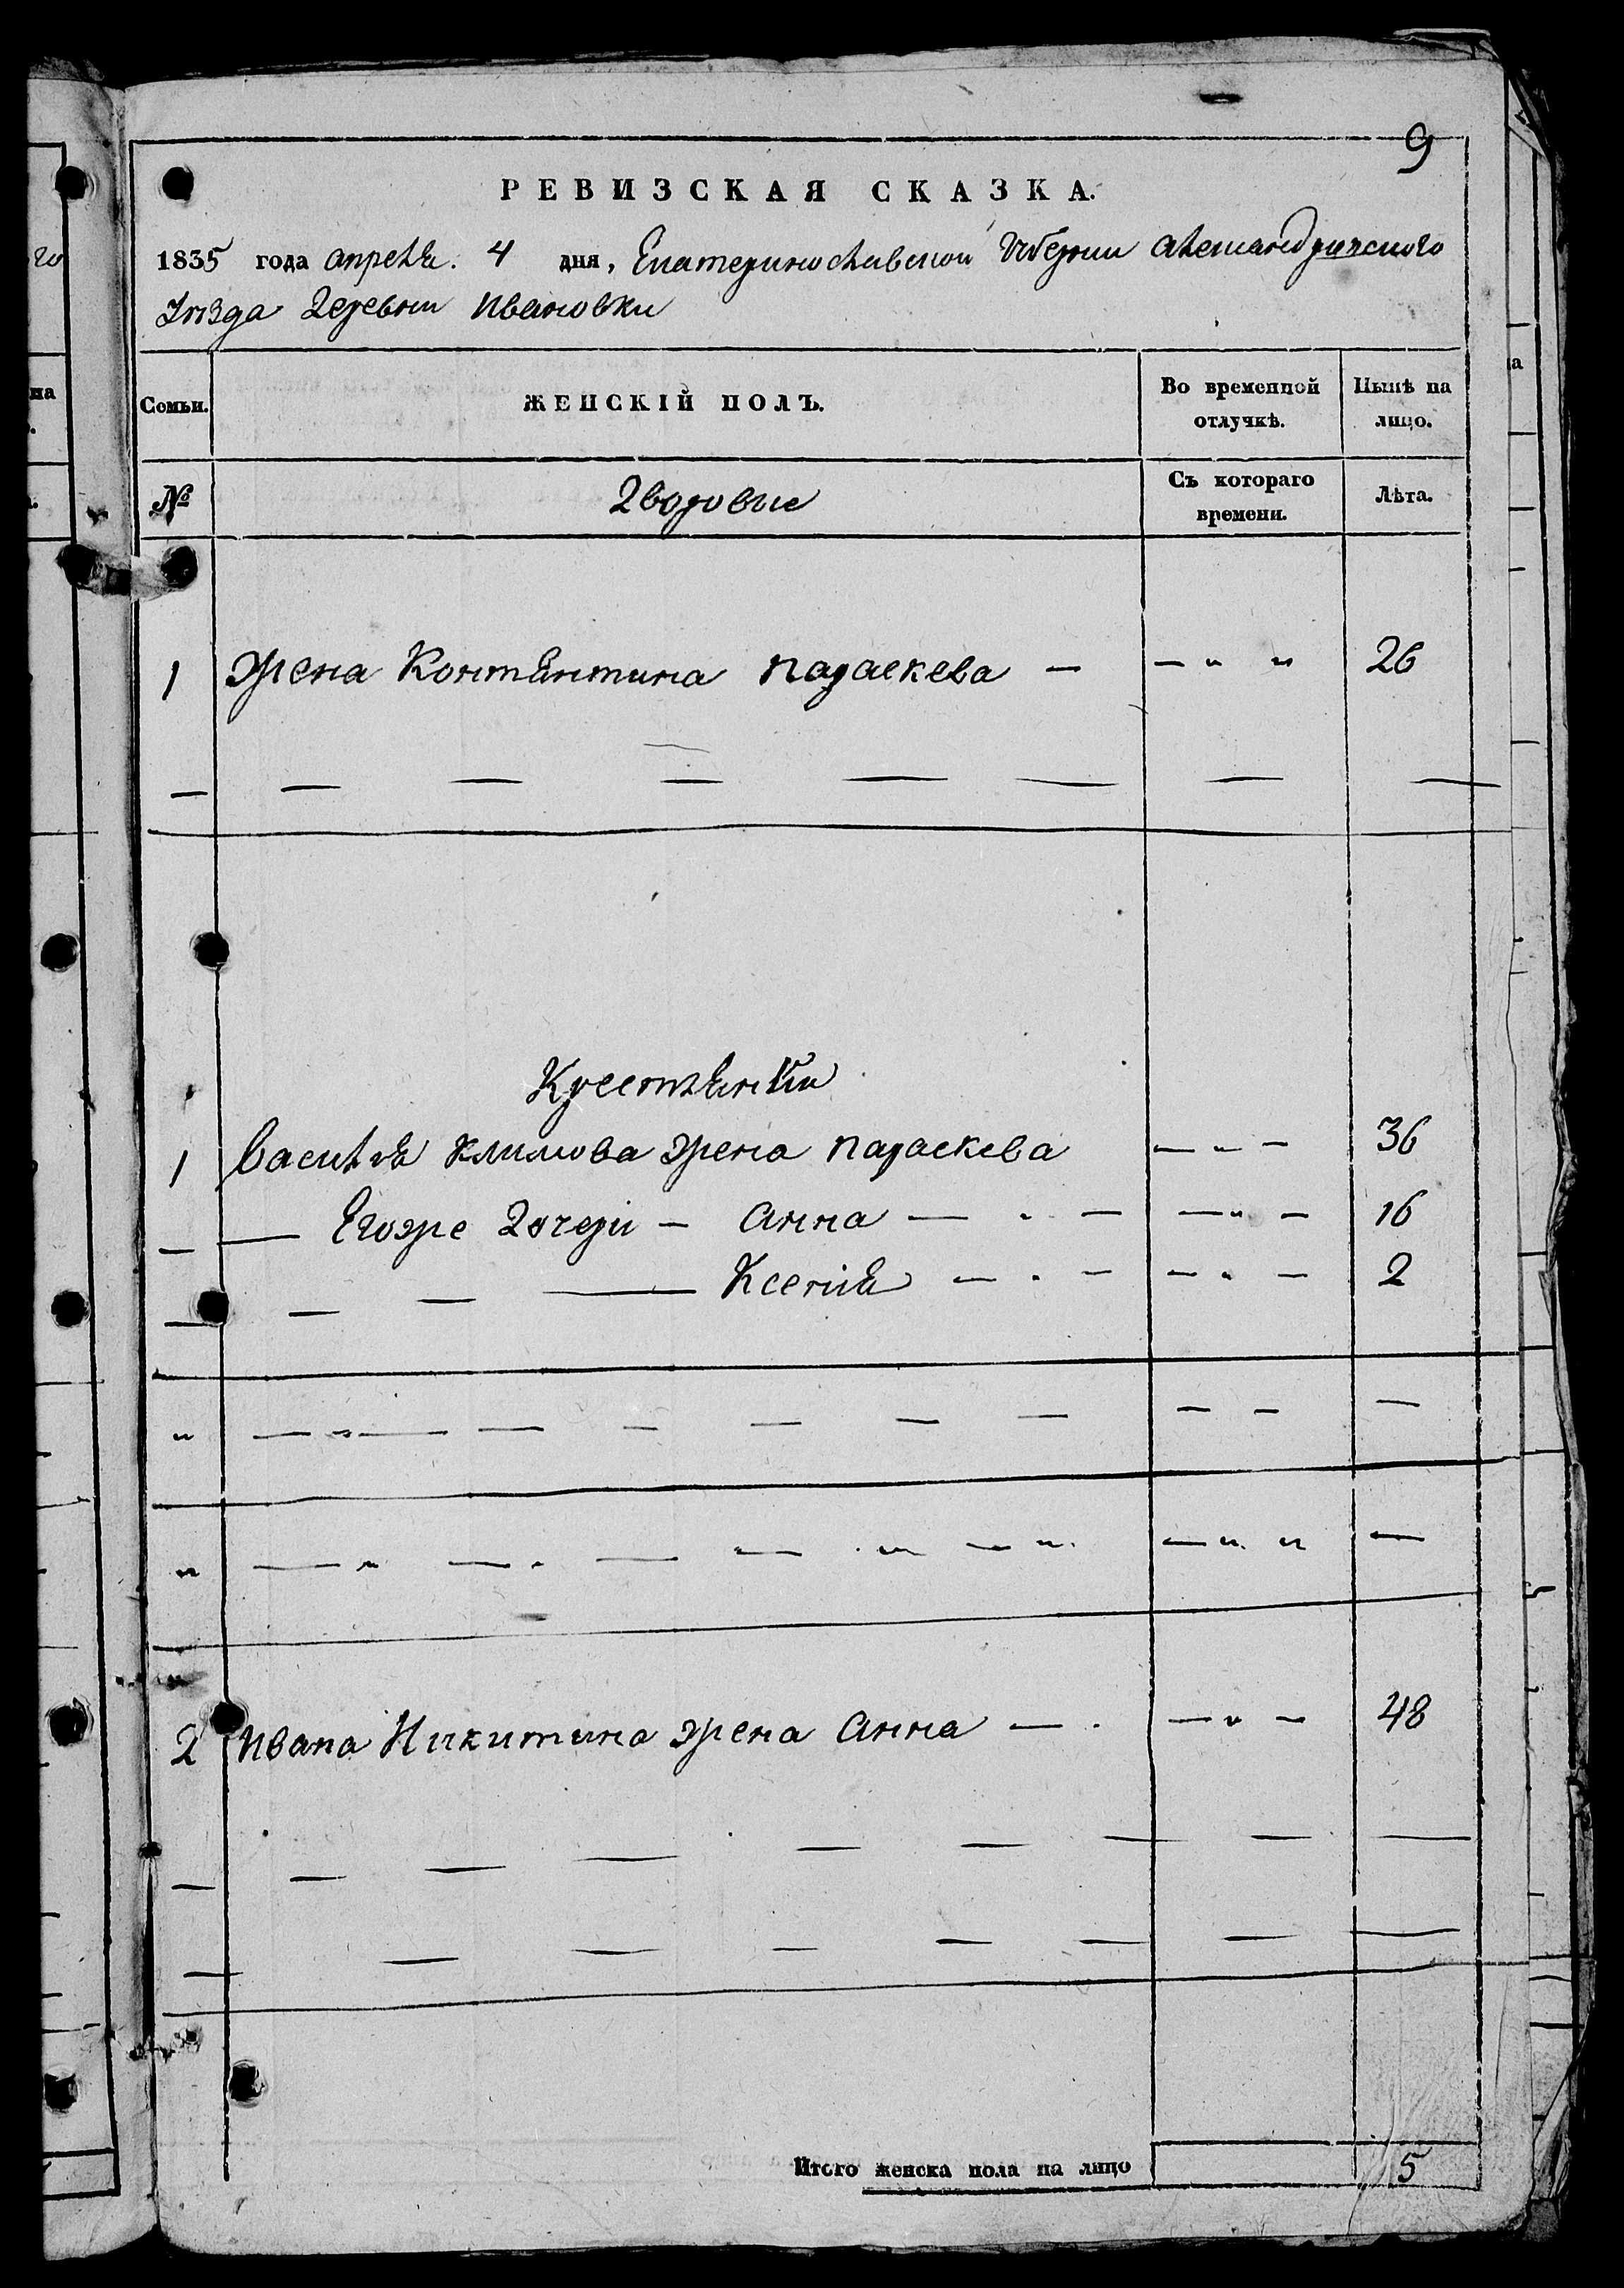 9
РЕВИЗСКАЯ СКАЗКА.
1835 года апреля. 4 дня, Екатеринославской Губернии Александрийского
Уѣзда Деревни Ивановки
Семьи. ЖЕНСКІЙ ПОЛЪ. Во временной отлучкѣ. Нынѣ на лицо.
№ Дворовые Съ котораго времени. Лѣта.
1 Жена Контянтина Параскева — — " " 26
Крестянки
1 Василя Климова жена Параскева — - — 36
— — Егоже Дочери — Анна — - — — " — 16
— — — — Ксения — - — — - — 2
2 Ивана Никитина жена Анна — - — " — 48
Итого женска пола на лицо 5